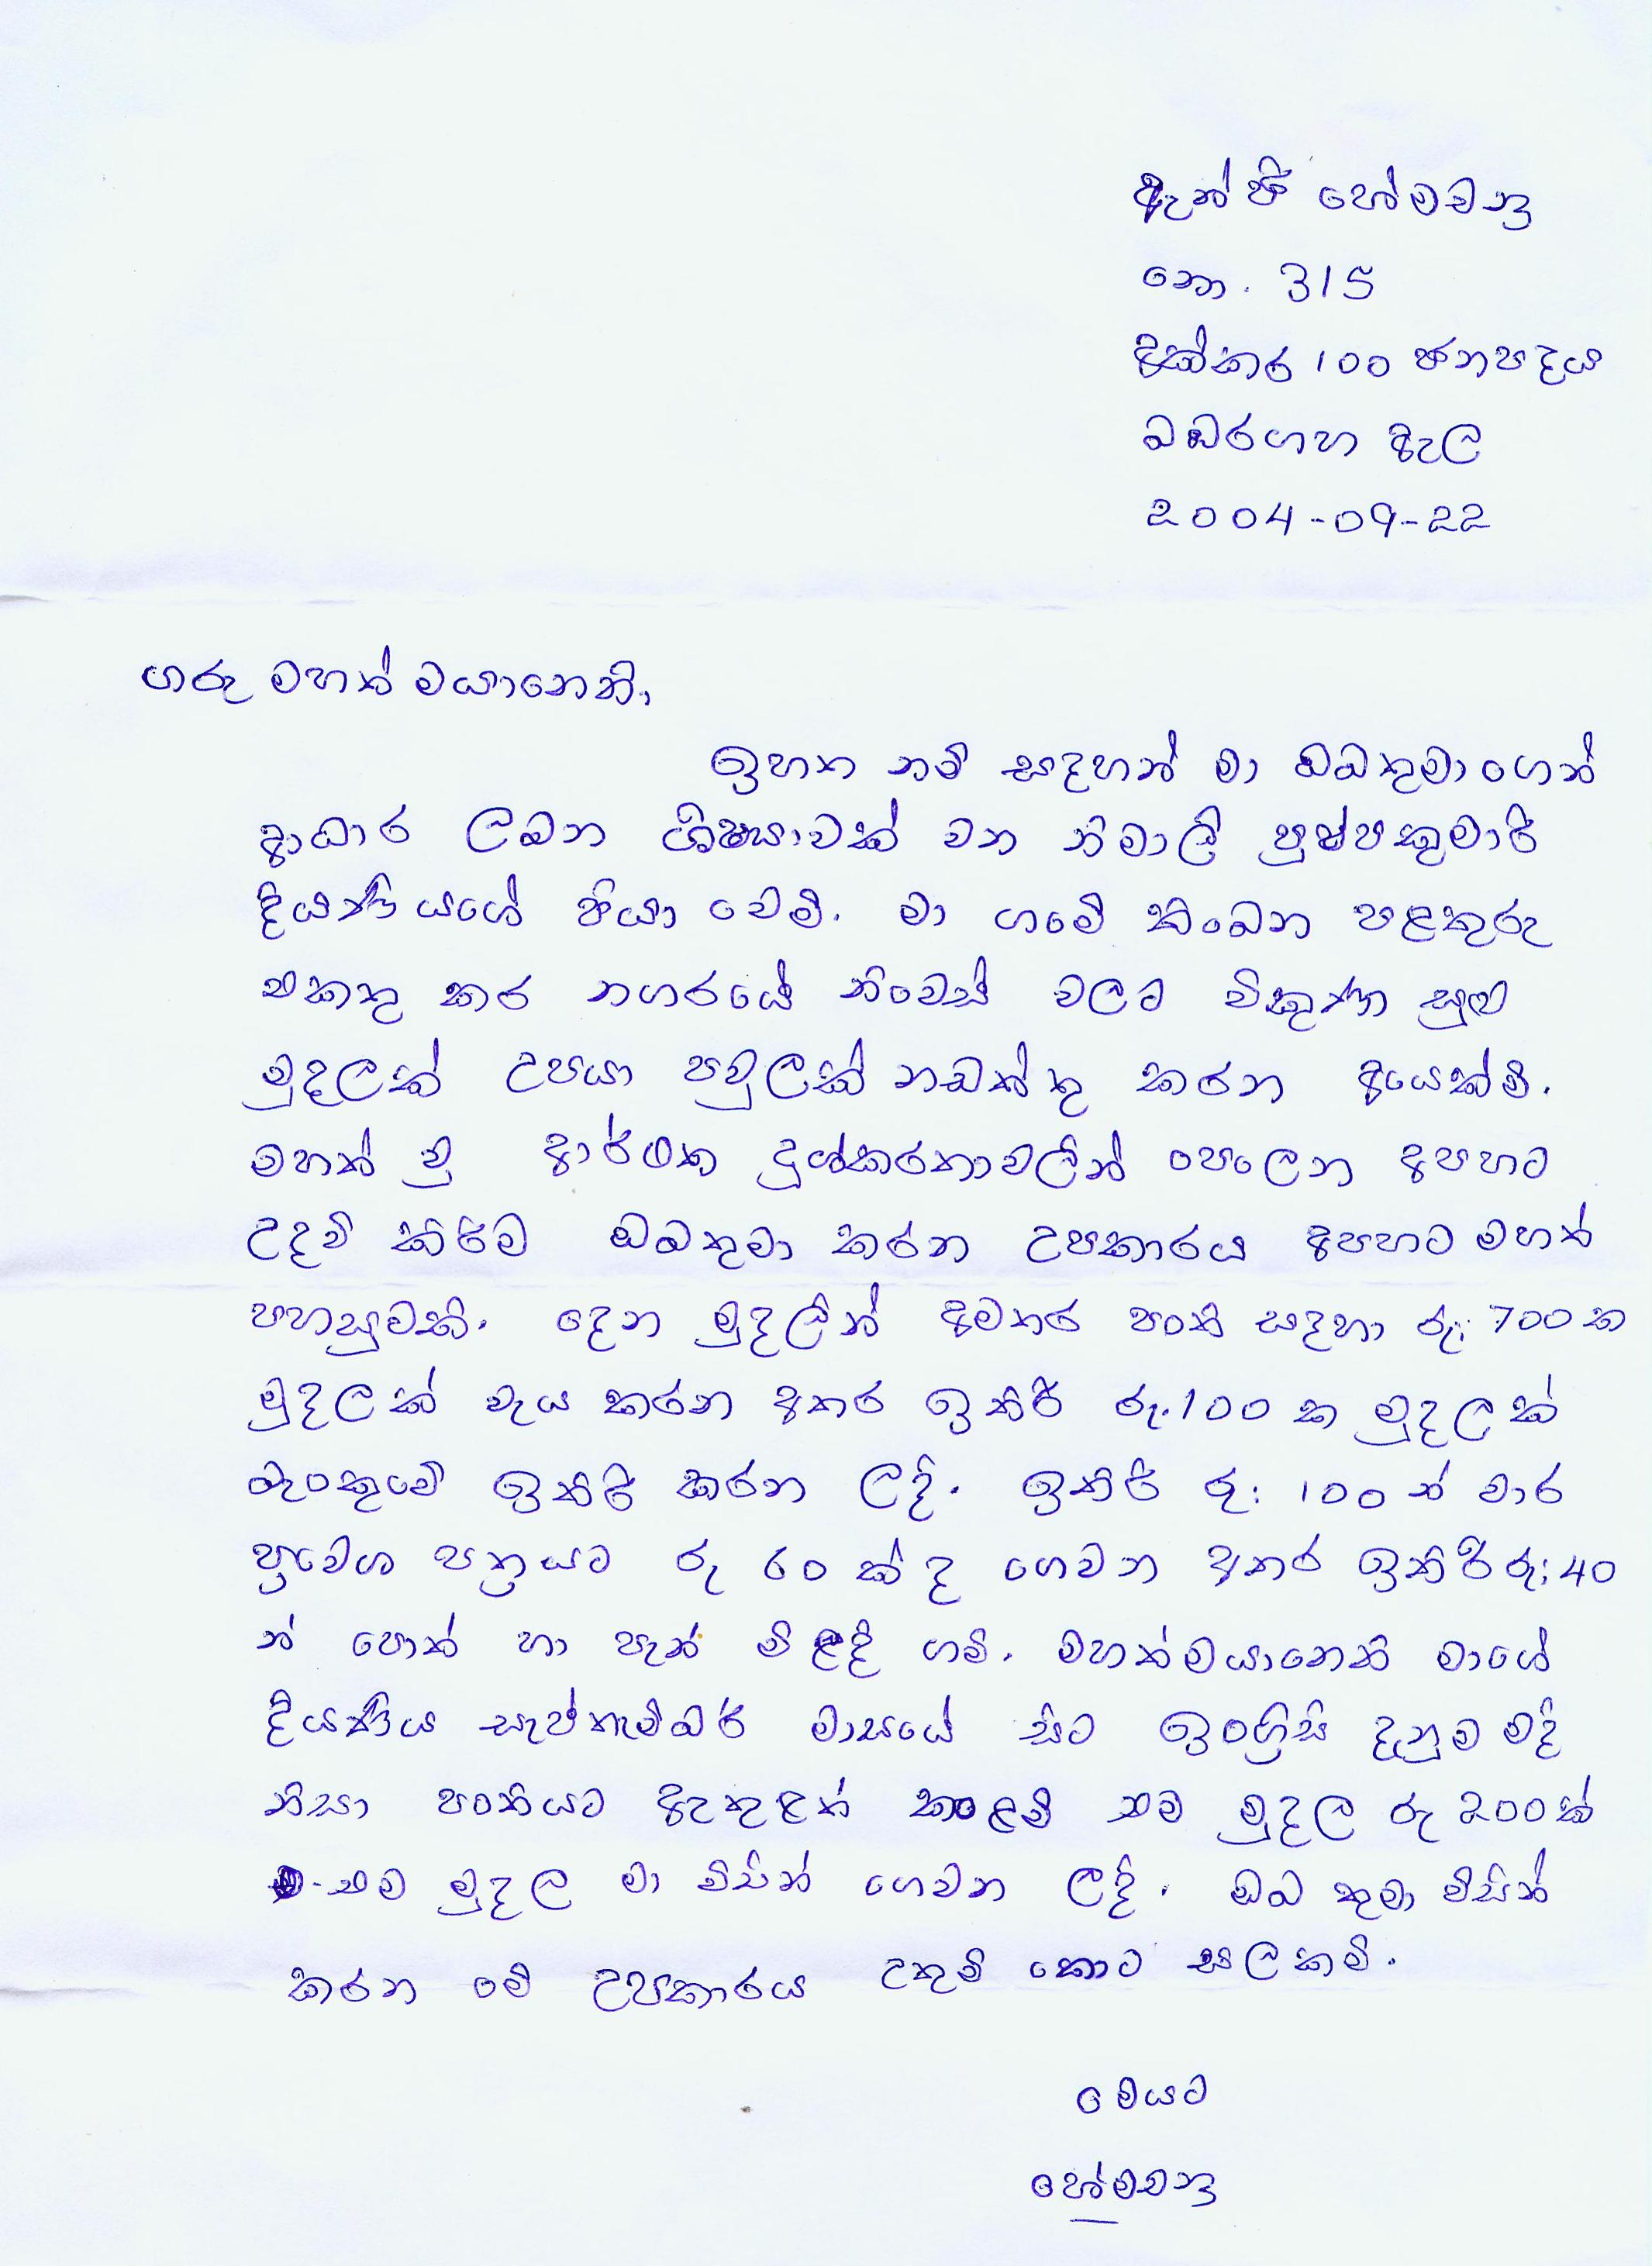 ඇන් ජී හේමචන්ද්‍ර
නො. 315
අක්කර 100 ජනපදය
ඛඩරගහ ඇල
2004-09-22
ගරු මහත් මයානෙනි,
ඉහත නම් සදහන් මා ඔබතුමාගෙන්
ආධාර ලබන ශිෂ්‍යාවක් වන නිමාලි පුෂ්පකුමාරි
දියණියගේ පියා වෙමි. මා ගමේ තිබෙන පළතුරු
එකතු කර නගරයේ නිවෙස් වලට විකුණා සුළු
මුදලක් උපයා පවුලක් නඩත්තු කරන අයෙක්මි.
මහත් වු ආර්ථික දුශ්කරතාවලින් පෙලෙන අපහට
උදව් කිරිම ඔබතුමා කරන උපකාරය අපහට මහත්
පහසුවකි. දෙන මුදලින් අමතර පංති සදහා රු: 700ක
මුදලක් වැය කරන අතර ඉතිරි රු. 100 ක මුදලක්
බැංකුවේ ඉතිරි කරන ලදි. ඉතිරි රු: 100න් වාර
ප්‍රවේශ පත්‍රයට රු 60 ක් ද ගෙවන අතර ඉතිරි රු: 40
න් පොත් හා පෑන් මිළදි ගමි. මහත්මයානෙනි මාගේ
දියණිය සැප්තැම්බර් මාසයේ සිට ඉංග්‍රිසි දැනුම මදි
නිසා පංතියට ඇතුළත් කළෙමි එම මුදල රු 200ක්
එම මුදල මා විසින් ගෙවන ලදි. ඔබ තුමා විසින්
කරන මෙම් උපකාරය උතුම් කොට සලකමි.
මෙයට
හේමචන්ද්‍ර